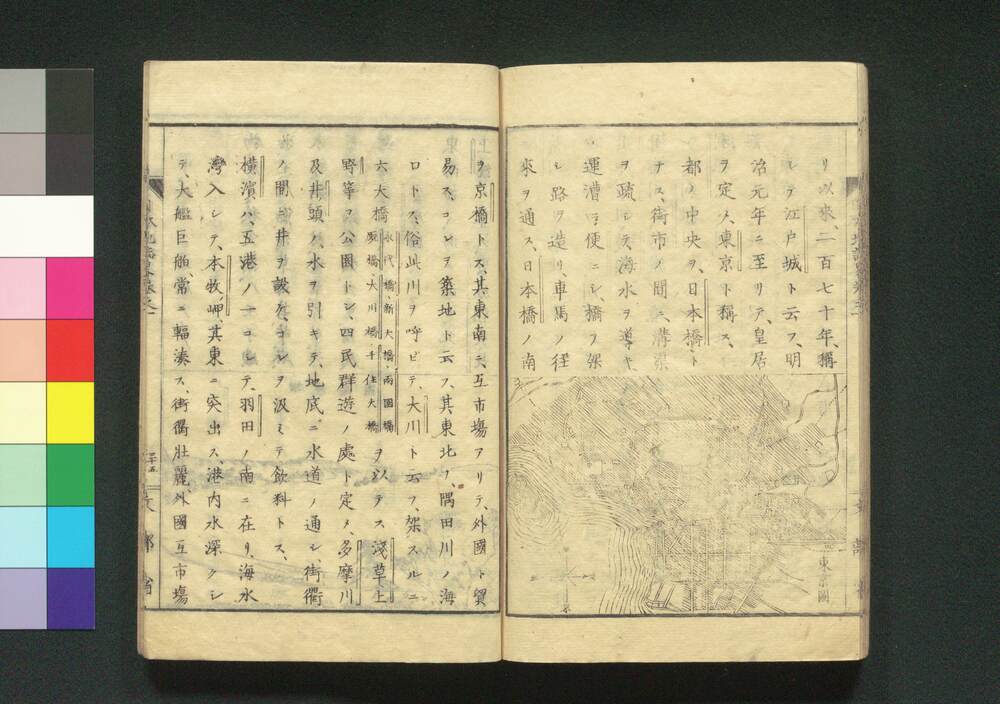 リ以來、二百七十年、稱
シテ江戸城ト云フ、明
治元年ニ至リテ、皇居
ヲ定メ、東京ト稱ス、
都ノ中央ヲ、日本橋ト
ナス、街市ノ間ニ、溝渠
ヲ疏シテ、海水ヲ導キ
運漕ニ便ニシ、橋ヲ架
シ路ヲ造リ、車馬ノ往
來ヲ通ス、日本橋ノ南
東京圖
ヲ京橋トス、其東南ニ、互市場アリテ、外國ト貿
易ス、コレヲ築地ト云フ、其東北ノ、隅田川ノ海
口トス、俗此川ヲ呼ビテ、大川ト云フ、架スルニ
六大橋
永代橋、新大橋、兩國橋
厩橋、大川橋、千住大橋
ヲ以テス、淺草上
野等ヲ公園トシ、四民群遊ノ處ト定メ、多摩川
及井頭ノ、水ヲ引キテ、地底ニ水道ノ通シ、街衢
ノ間ニ井ヲ設ケ、コレヲ汲ミテ飲料トス、
横濱ハ、五港ノ一ニシテ、羽田ノ南ニ在リ、海水
灣入シテ、本牧岬、其東ニ突出ス、港内水深クシ
テ、大艦巨舶、常ニ輻湊ス、街衢壯麗、外國互市場
二十五
文部省